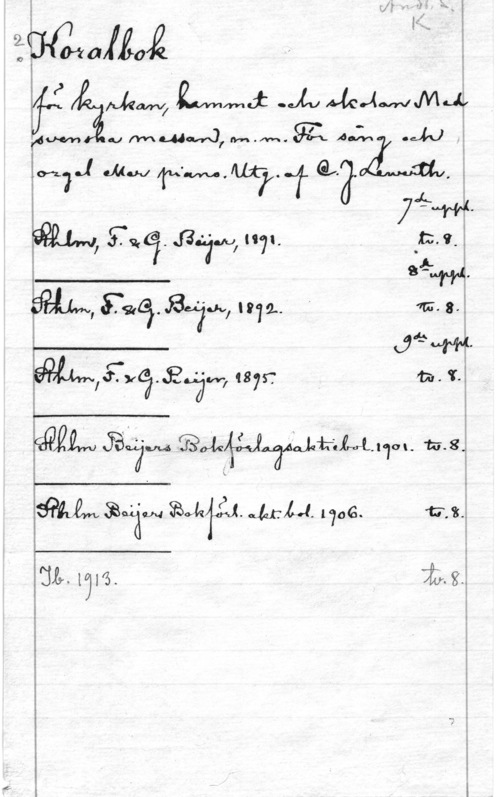 Andl. L.
K
2. Koralbok
för kyrkan, hemmet och skolan Med
svenska messan, m. m. För sång och
orgel eller piano. Utg. af C. J. Lewerth.
7de uppl.
Sthlm, F. & G. Beijer, 1891. tv. 8.
8de uppl.
Sthlm, F. & G. Beijer, 1892. tv. 8.
9de uppl.
Sthlm, F. & G. Beijer, 1895. tv. 8.
Sthlm Beijers Bokförlagsaktiebol. 1901. tv. 8.
Sthlm Beijers Bokförl. akt. bol. 1906. tv. 8.
Ib. 1913. tv. 8.